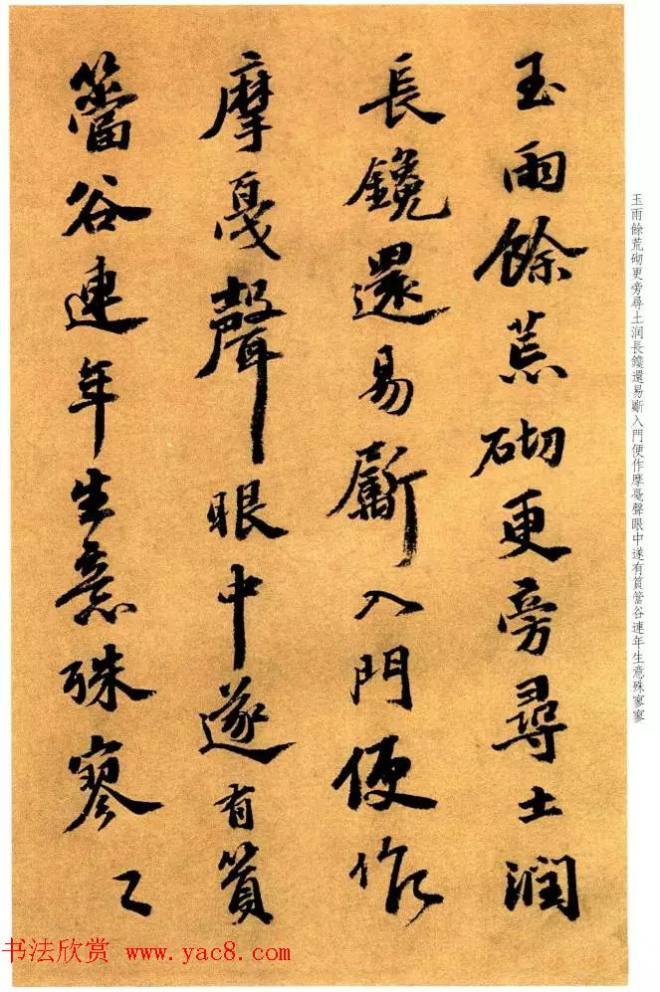 玉雨餘荒砌更旁尋土润
長鑱還易斸入門便作
摩戛聲眼中遂有篔
簹谷連年生意殊寥〻
玉雨餘荒砌更旁尋土润長鑱還易斸入門便作摩戛聲眼中遂有篔簹谷連年生意殊寥寥
书法欣赏 www.yac8.com